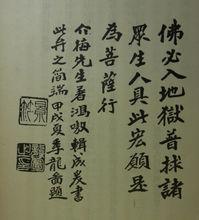 佛必入地獄普拯諸
眾生人具此宏願是
為菩薩行
介梅先生著鴻嗷輯成爰書
此弁之簡端甲戌夏季龍喬題